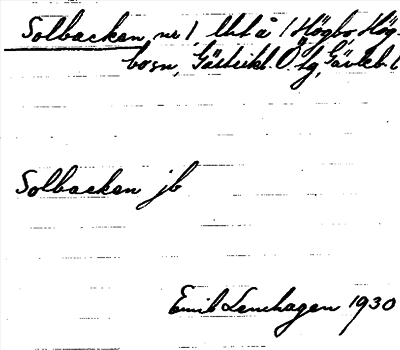 Solbacken, nr 1 lht å 1 Högbo, Hög-
bo sn, Gästrikl. Ö. tg, Gävleb. l
Solbacken jb
Emil Lenehagen 1930